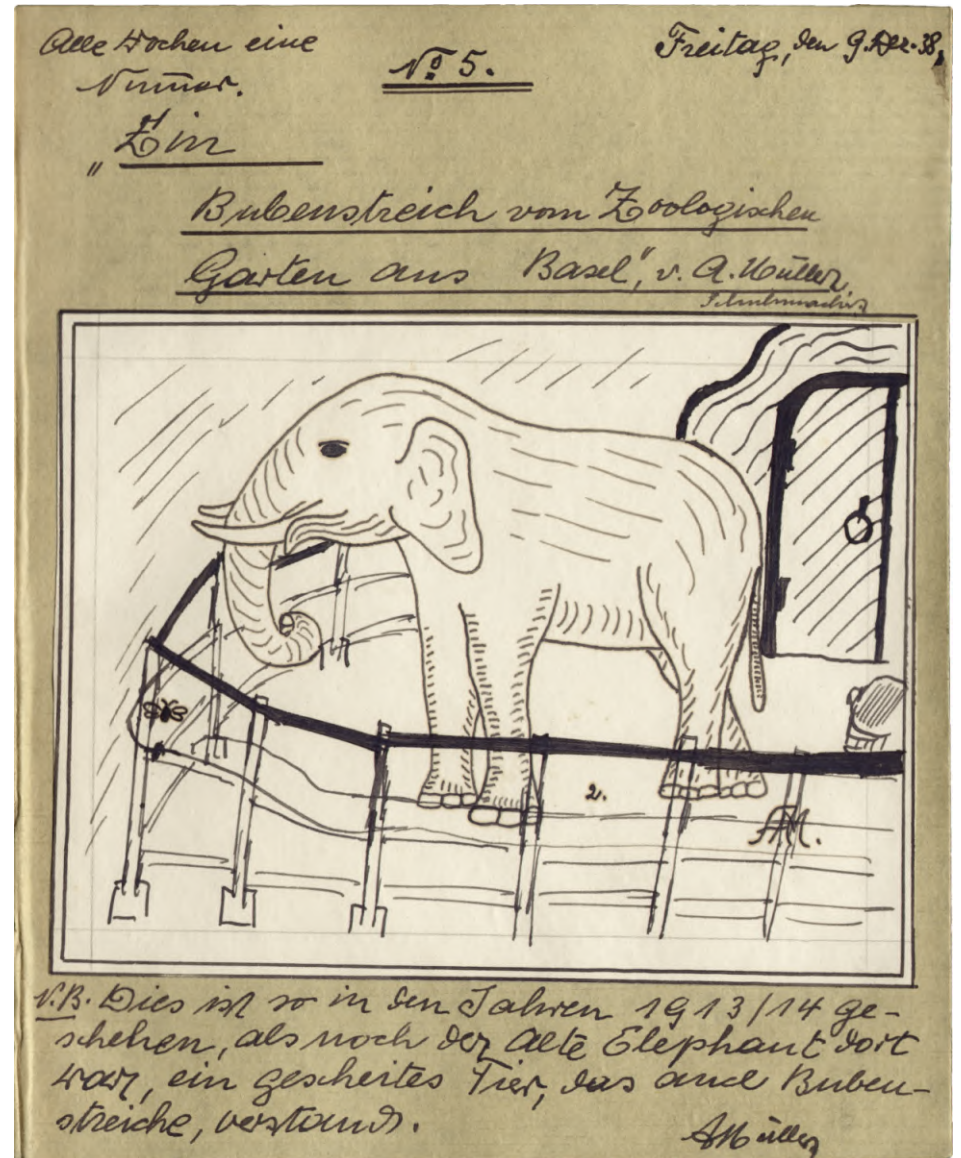 Alle Wochen eine
Num̄er.
No 5.
Freitag, den 9. Dez. 38,
„Ein
Bubenstreich vom Zoologischen
Garten aus Basel", v. A. Müller
Schuhmacher
2.
AM.
N.B. Dies ist so in den Jahren 1913/14 ge-
schehen, als noch der alte Elephant dort
war, ein gescheites Tier, das auch Buben-
streiche, verstand.
AMüller